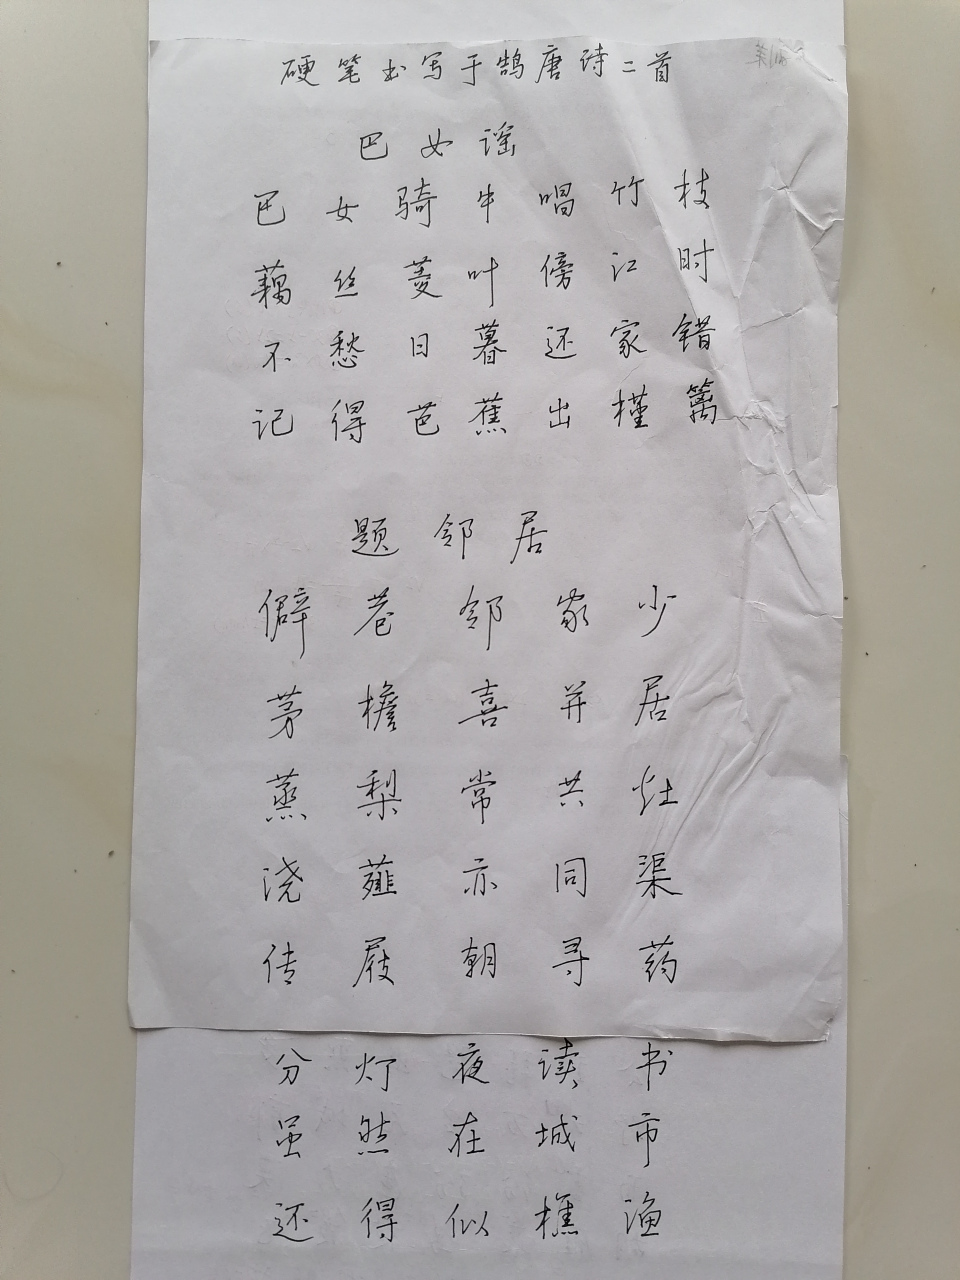 硬笔书写于鹄唐诗二首
巴女谣
巴女骑牛唱竹枝
藕丝菱叶傍江时
不愁日暮还家错
记得芭蕉出槿篱
题邻居
僻巷邻家少
茅檐喜并居
蒸梨常共灶
浇薤亦同渠
传屐朝寻药
分灯夜读书
虽然在城市
还得似樵渔